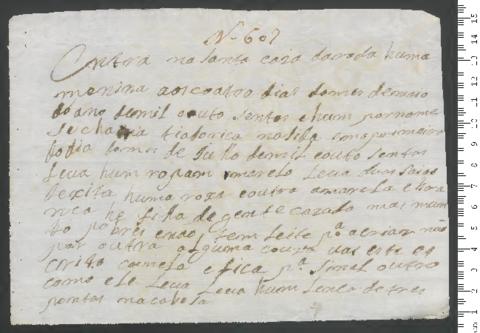 No 607
Entra na Santa caza da roda huma
menina aos coatro dias do mes de maio
do ano de mil outo sentos e hum por nome
se cha tiadorica nasida em o primeiro
dia do mes de Julho de mil e outo sentos
Leva hum roupam amarelo Leva duas saias
de xita huma roxa e outra amarela e
he filha de gente cazada mas muin
to pobres e nao tem leite pa a criar não
por outra alguma couza vai este es
crito com ela e fica pa sinal outro
como ele Leva Leva hum Lenco de tres
pontas na cabesa